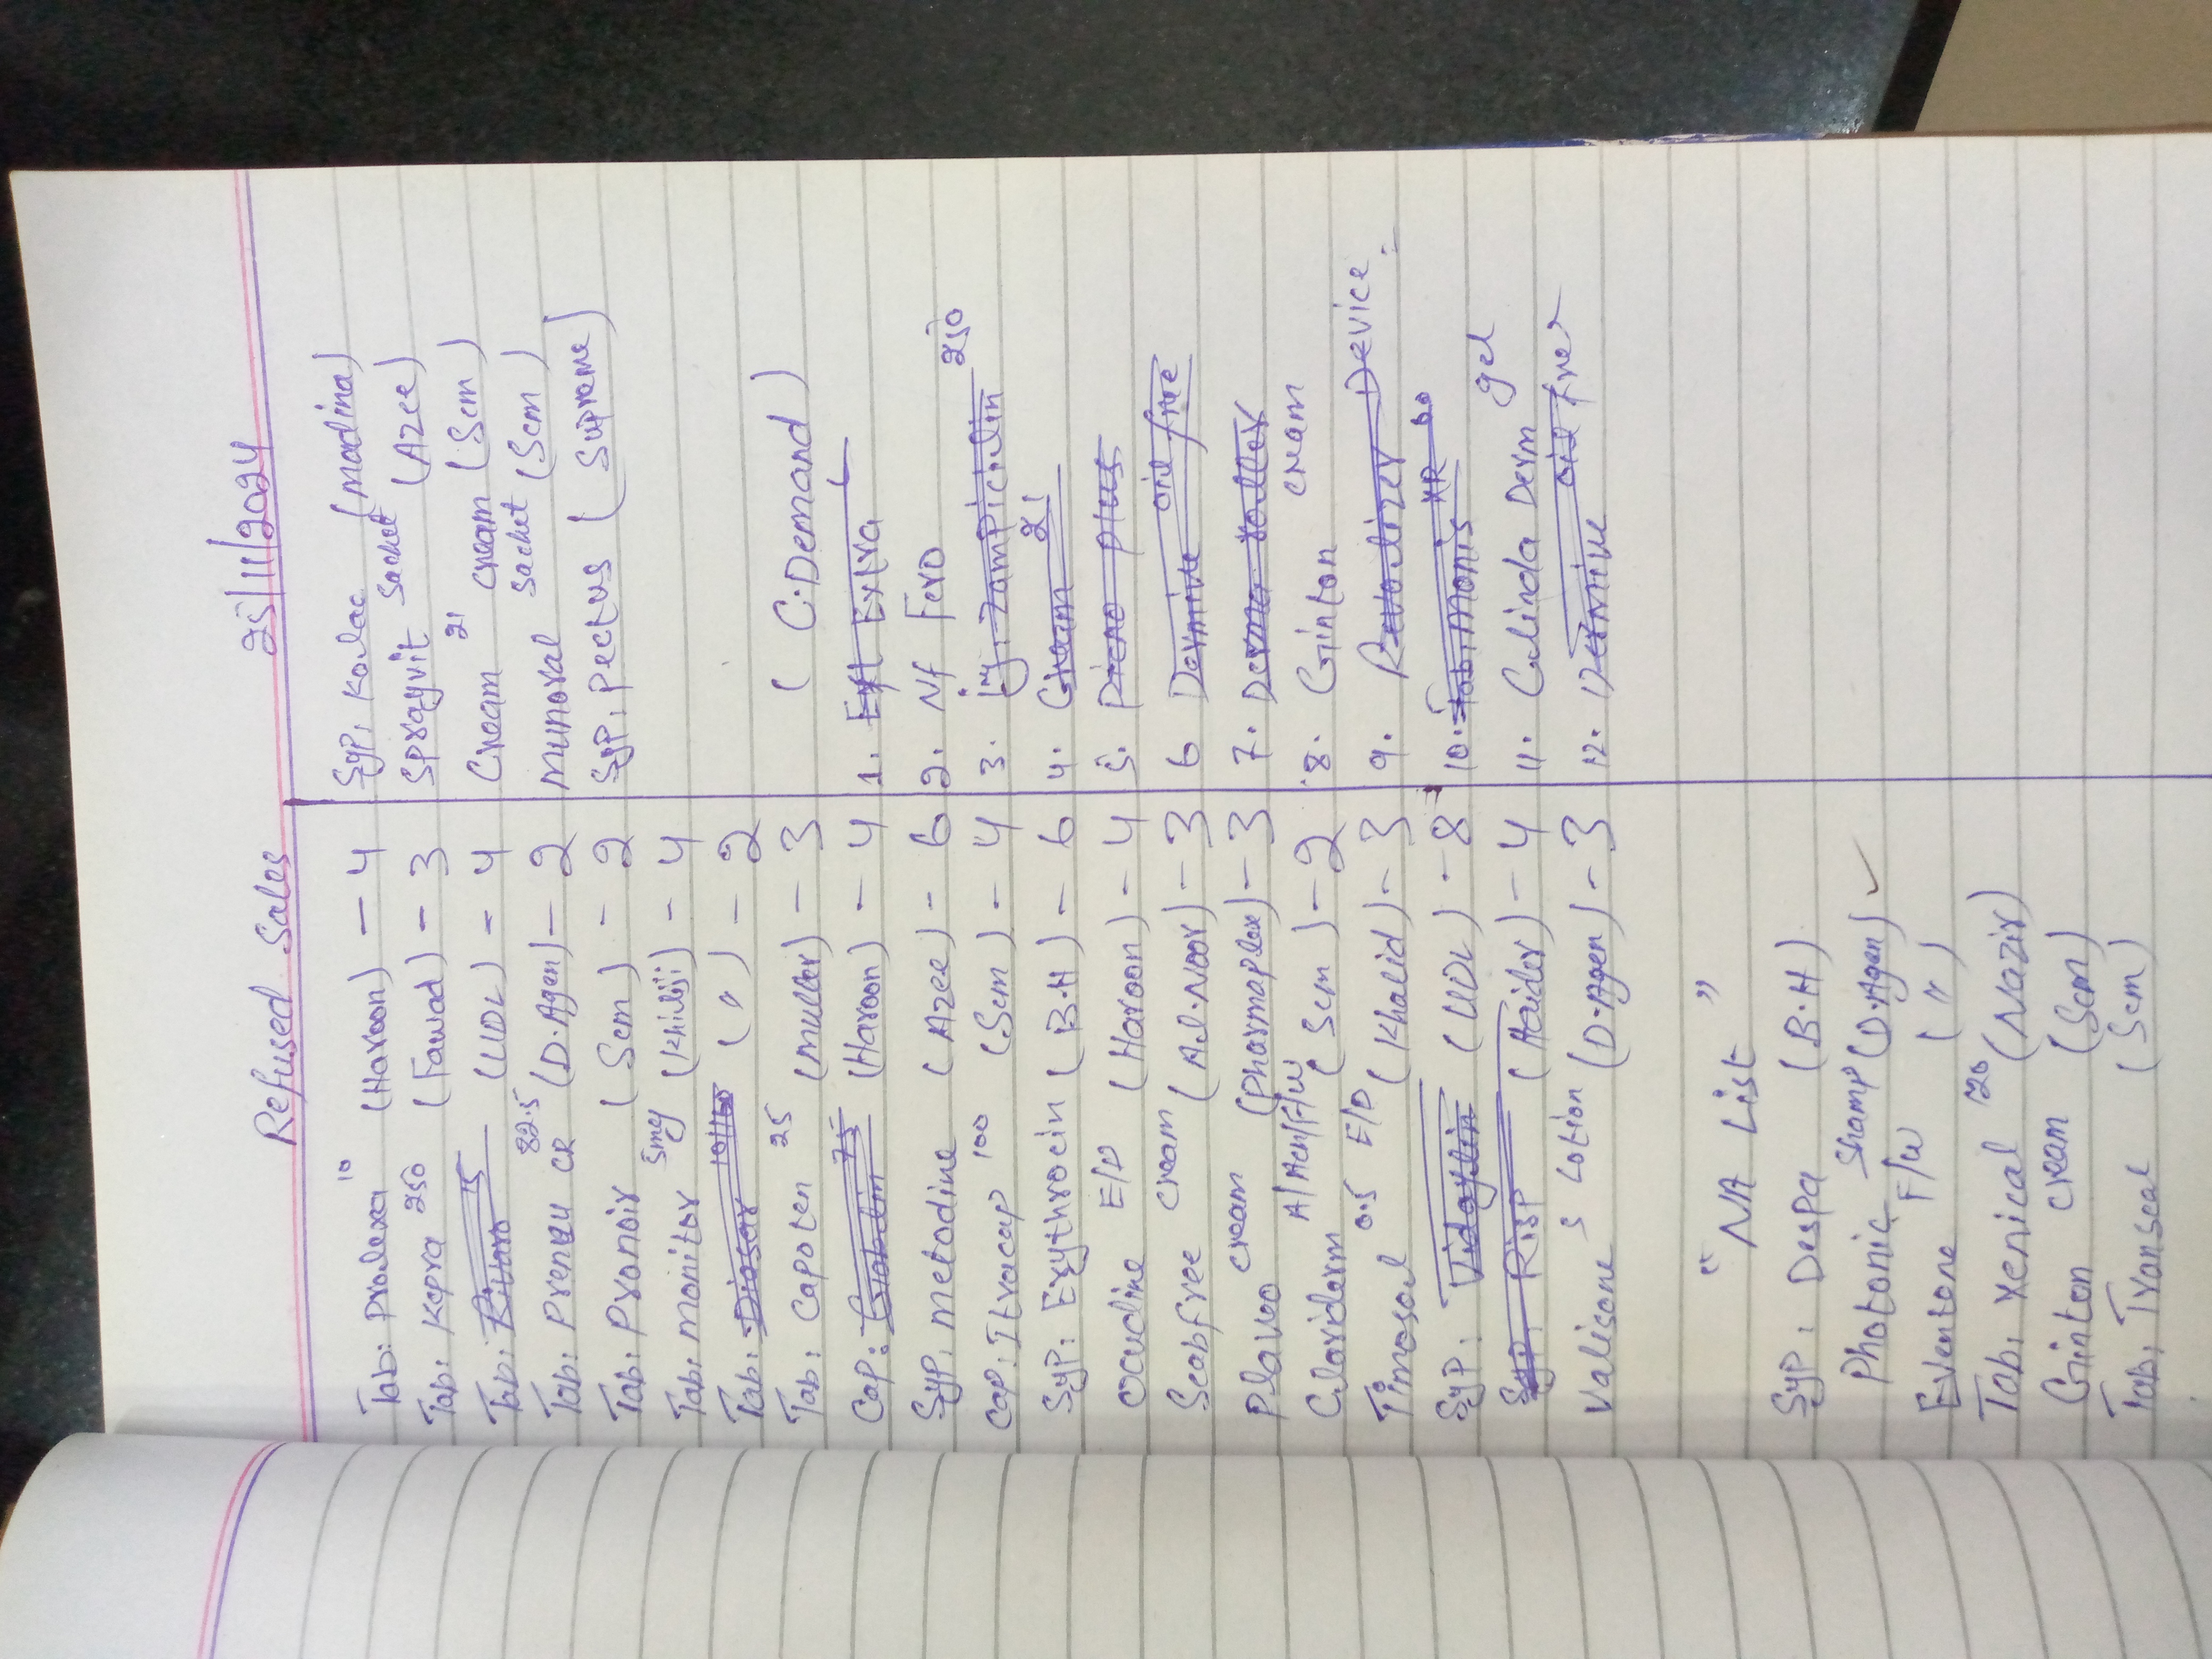 Refused Sales 25/11/2024
Tab: Prolexa 10 (Haroon) - 4
Tab: Kepra 250 (Fawad) - 3
Tab: 15 (UDL) - 4
Tab: Prenzu CR 82.5 (D.Agen) - 2
Tab: Pronoir (Scm) - 2
Tab: monitor 5mg (Khiliji) - 4
Tab: Diasar (") - 2
Tab: Capoten 25 (muller) - 3
Cap: Gabalin 75 (Haroon) - 4
Syp: metodine (Azee) - 6
Cap: Itracap 100 (Scm) - 4
Syp: Erythrocin (B.H) - 6
Ocudine E/D (Haroon) - 4
Scabfree cream (Al.Noor) - 3
Plavo cream (Pharmaplex) - 3
Clariderm A/Acn/F/W (Scm) - 2
Timosol 0.5 E/D (Khalid) - 3
Syp: Vidaylin (UDL) - 8
Syp: Risp (Haider) - 4
Valisone S Lotion (D.Agen) - 3
" NA List "
Syp: Despa (B.H)
Photonic Shamp (D.Agen) ✓
Eventone F/W (")
Tab: Xenical 120 (Nazir)
Ginton cream (Scm)
Tab: Transeal (Scm)
Syp: Kolac (madina)
Spragvit sachet (Azee)
Cream 21 cream (Scm)
munoral sachet (Scm)
Syp: Pectus (Supreme)
( C.Demand )
1. Extra
2. Nf Fero
3. inj: Zampicilin 250
4. Cream 21
5. plus
6 Dermive oil free
7. Derma roller
8. Ginton cream
9. Revolizer Device
10. Tab: Monis XR 60
11. Clinda Derm gel
12. Dermive oil free